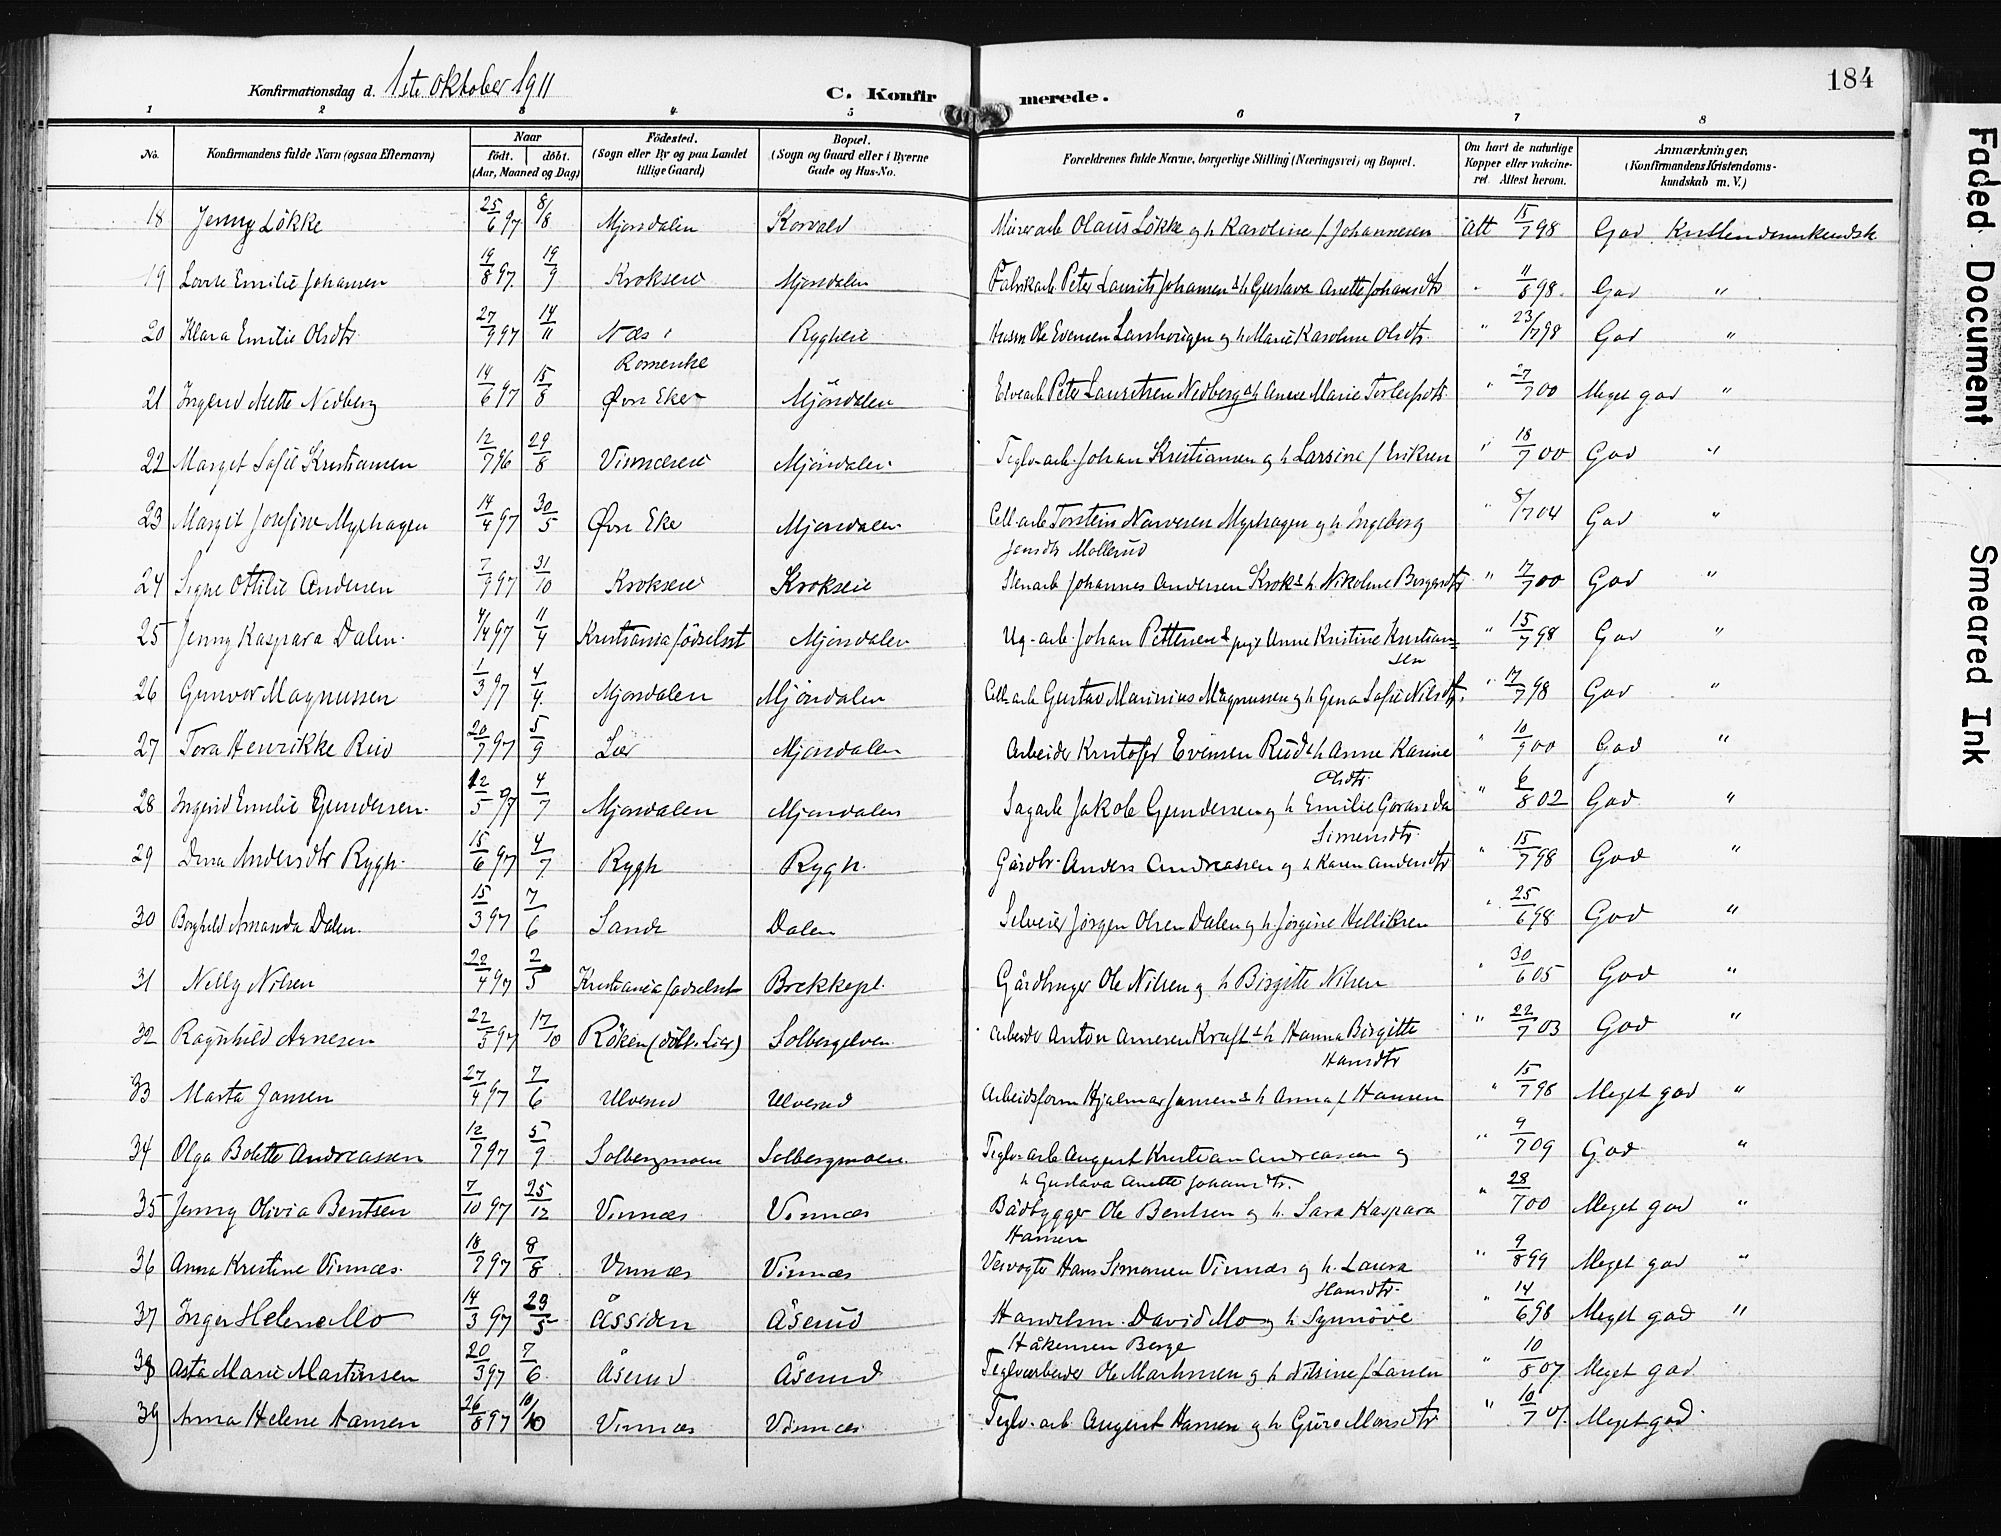 184
Konfirmationsdag d. 1ste Oktober 1911
C. Konfirmerede.
1 2 3 4 5 6 7 8
No. Konfirmandens fulde Navn (ogsaa Efternavn) Naar født. døbt. (Aar, Maaned og Dag) Födested. (Sogn eller By og paa Landet tillige Gaard) Bopæl. (Sogn og Gaard eller i Byerne Gade og Hus-No. Forældrenes fulde Navne, borgerlige Stilling (Næringsvei) og Bopæl. Om havt de naturlige Kopper eller vakcineret. Attest herom. Anmærkninger, (Konfirmandens Kristendomskundskab m. V.)
18 Jenny Løkke 25/6 97 8/8 Mjøndalen Korvald Murerarb Olaus Løkke og h Karoline f Johannesen Att 15/7 98 God Kristendomskundsk.
19 Lovise Emilie Johansen 19/8 97 19/9 Krokseie Mjøndalen Fabrikarb Peter Laurits Johansen & h Gustava Anette Johansdtr " 11/8 98. God "
20 Klara Emilie Olsdtr 27/9 97 14/11 Næs i Romerike Ryggheie Husm Ole Evensen og h Marie Karoline Olsdtr. " 23/7 98 God "
21 Ingerid Mette Nedberg 14/6 97 15/8 Øvre Eker Mjöndalen Elvearb Peter Lauritsen Nedberg & h Anne Marie Torleifsdtr. " 27/7 00 Meget god "
22 Marget Sofie Kristiansen 12/7 96 29/8 Vinnæseie Mjöndalen Teglv-arb. Johan Kristiansen og h Larsine f Eriksen " 18/7 00 God "
23 Margit Josefine Myrhagen 14/4 97 30/5 Øvre Eke Mjöndalen Cell-arb Torstein Narvesen Myrhagen og h Ingeborg Jensdtr Mollerud " 8/7 04 God "
24 Signe Ottilie Andersen 7/9 97 31/10 Krokseie Krokseie Stenarb Johannes Andersen Krok & h Nikoline " 17/7 00 God "
25 Jenny Kaspara Dalen. 4/4 97 11/4 Kristiania födselsst Mjöndalen Ug-arb. Johan Pettersen & pige Anne Kristine Kristiansen " 15/7 98 God "
26 Gunvor Magnussen 1/3 97 4/4. Mjöndalen Mjöndalen Cell-arb Gustav Marinius Magnussen og h Gina Sofie Nilsdtr. " 17/7 98 God "
27 Tora Henrikke Ruud 20/7 97 5/9 Lier Mjöndalen Arbeider Kristofer Evensen Rud & h Anne Karine Olsdtr. " 10/9 00 God "
28 Ingrid Emilie Gundersen. 12/5 97 4/7 Mjöndalen Mjöndalen Sagarb Jakob Gundersen og h Emilie Simensdtr. " 6/8 02 God "
29 Dina Andersdtr Rygh. 15/6 97 4/7. Rygh Rygh. Gårdbr. Anders Andreassen og h Karen Andersdtr " 15/7 98 God "
30 Borghild Amanda Dalen. 15/3 97 7/6 Sande Dalen Selveier Jörgen Olsen Dalen og h Jörgine Helliksen " 25/6 98 God "
31 Nelly Nilsen 22/4 97 2/5 Kristiania födselsst Brekkepl. Gårdbruger Ole Nilsen og h Birgitte Nilsen " 30/6 05 God "
32 Ragnhild Arnesen 22/5 97 17/10 Röken (döbt. Lier) Solbergelven Arbeider Anton Arnesen Kraft & h Hanna Birgitte Hansdtr " 22/7 03 God "
33 Marta Jansen 27/4 97 7/6 Ulverud Ulverud Arbeidsform Hjalmar Jansen & h Anna f Hansen " 15/7 98 Meget god "
34 Olga Bolette Andreassen 12/7 97 5/9 Solbergmoen Solbergmoen. Teglv-arb August Kristian Andreassen og h Gustava Anette Johansdtr. " 9/7 09 God "
35 Jenny Olivia Bentsen 7/10 97 25/12 Vinnæs Vinnæs Bådbygger Ole Bentsen og h. Sara Kaspara Hansen " 28/7 00 Meget god "
36 Anna Kristine Vinnæs. 18/7 97 8/8 Vinnæs Vinnæs Veivogter Hans Simensen Vinnæs og h. Laura Hansdtr. " 9/8 99 Meget god "
37 Inger Helene Mo 14/3 97 29/5 Åssiden Åserud Handelsm. David Mo og h Synnöve Håkensen Berge " 14/6 98 Meget god "
38 Asta Marie Martinsen 20/3 97 7/6. Åserud Åserud Teglværkarbeider Ole Martinsen og h Nilsine f Larsen " 10/8 07 Meget god
39 Anna Helene Hansen 26/8 97 10/10 Vinnæs Vinnæs Teglv-arb. August Hansen og h Guro Monsdtr. " 10/7 01. Meget god.
Faded Document
Smeared Ink